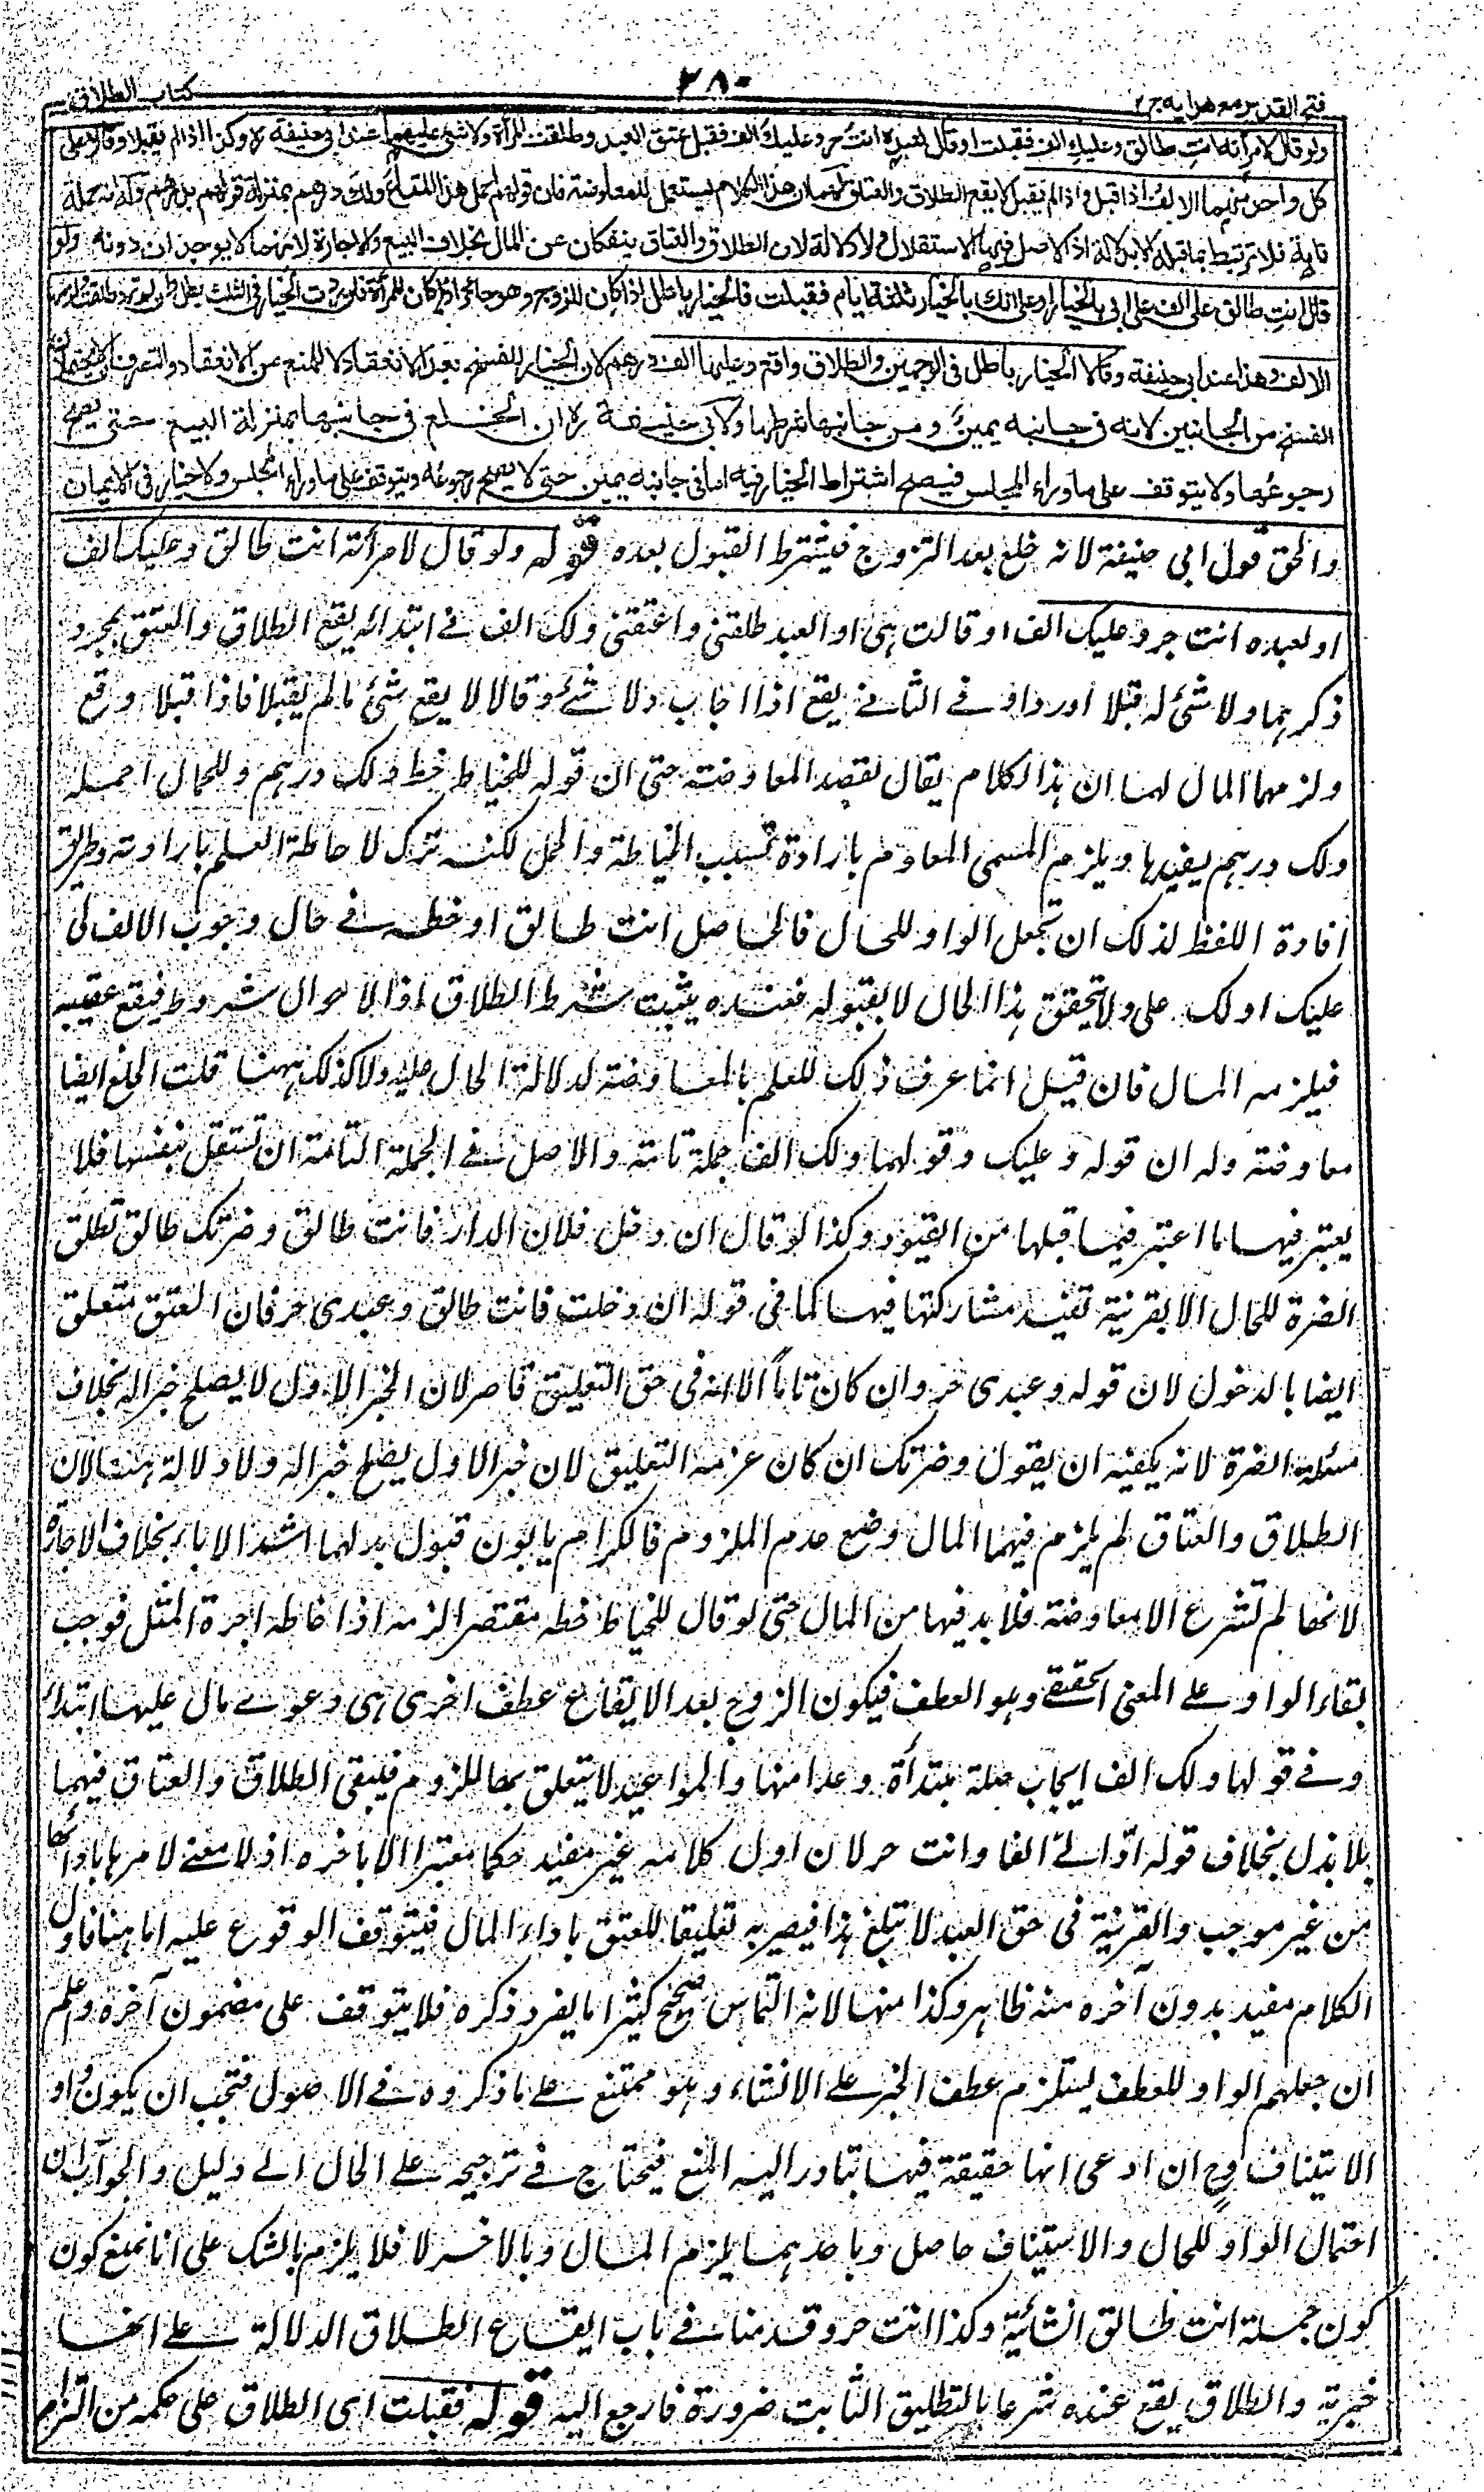 فتح القدير مع هدايه ج ٢
٣٨٠
كتاب الطلاق
ولو قال لامرأته انت طالق وعليك الف فقبلت او قال لعبده انت حر وعليك الف فقبل عتق العبد وطلقت المرأة ولا شئ عليهما عند ابى حنيفة رح وكذا اذا لم يقبلا وقالا على
كل واحد منهما الالف اذا قبل واذا لم يقبل لا يقع الطلاق والعتاق لهما ان هذا الكلام يستعمل للمعاوضة فان قولهم احمل هذا المتاع ولك درهم بمنزلة قولهم بدرهم وله انه جملة
تامة فلا ترتبط بما قبله الا بدلالة اذ الاصل فيها الاستقلال ولا دلالة لان الطلاق والعتاق ينفكان عن المال بخلاف البيع والاجارة لانهما لا يوجدان دونه ولو
قال انت طالق على الف على انى بالخيار او على انك بالخيار ثلثة ايام فقبلت فالخيار باطل اذا كان للزوج وهو جائز اذا كان للمرأة فان ردت الخيار فى الثلث بطل وان لم ترد طلقت ولزمها
الالف وهذا عند ابى حنيفة وقالا الخيار باطل فى الوجهين والطلاق واقع وعليها الف درهم لان الخيار للفسخ بعد الانعقاد لا للمنع من الانعقاد والتصرفان لا يحتملان
الفسخ من الجانبين لانه فى جانبه يمين ومن جانبها شرطها ولابى حنيفة رح ان الخلع فى جانبها بمنزلة البيع حتى يصح
رجوعها ولا يتوقف على ما وراء المجلس فيصح اشتراط الخيار فيه اما فى جانبه يمين حتى لا يصح رجوعه ويتوقف على ما وراء المجلس ولا خيار فى الايمان
والحق قول ابى حنيفة لانه خلع بعد التزوج فيشترط القبول بعده قوله ولو قال لامرأته انت طالق وعليك الف
او لعبده انت حر وعليك الف او قالت هى او العبد طلقنى واعتقنى ولك الف فى ابتدائه يقع الطلاق والعتق بمجرد
ذكرهما ولا شئ له قبلا او ردا و فى الثانى يقع اذا اجاب ولا شئ وقالا لا يقع شئ ما لم يقبلا فاذا قبلا وقع
ولزمهما المال لهما ان هذا الكلام يقال لقصد المعاوضة حتى ان قوله للخياط خط ولك درهم وللحمال احمله
ولك درهم يفيدها ويلزم المسمى المعلوم بارادة تسبب الخياطة والحمل لكنه ترك لاحاطة العلم بارادته وطريق
افادة اللفظ لذلك ان تجعل الواو للحال فالحاصل انت طالق او خطه فى حال وجوب الالف لى
عليك او لك على ولا تحقق هذا الحال لا بقبوله فعنده يثبت شرط الطلاق اذ الاحوال شروط فيقع عقيبه
فيلزمه المال فان قيل انما عرف ذلك للعلم بالمعاوضة لدلالة الحال عليه ولا كذلك ههنا قلت الخلع ايضا
معاوضة وله ان قوله وعليك وقولهما ولك الف جملة تامة والاصل فى الجملة التامة ان تستقل بنفسها فلا
يعتبر فيها ما اعتبر فيما قبلها من القيود وكذا لو قال ان دخل فلان الدار فانت طالق وضرتك طالق تطلق
الضرة للحال الا بقرينة تفيد مشاركتها فيها كما فى قوله ان دخلت فانت طالق وعبدى حر فان العتق يتعلق
ايضا بالدخول لان قوله وعبدى حر وان كان تاماً الا انه فى حق التعليق قاصر لان الخبر الاول لا يصلح خبرا له بخلاف
مسئلة الضرة لانه يكفيه ان يقول وضرتك ان كان غرضه التعليق لان خبر الاول يصلح خبرا له ولا دلالة هنا لان
الطلاق والعتاق لم يلزم فيهما المال وضع عدم الملزوم فالكرام يابون قبول بدلهما اشد الاباء بخلاف الاجارة
لانها لم تشرع الا معاوضة فلا بد فيها من المال حتى لو قال للخياط خطه مقتصرا لزمه اذا خاطه اجرة المثل فوجب
بقاء الواو على المعنى الحقيقى وهو العطف فيكون الزوج بعد الايقاع عطف اخرى هى دعوى مال عليها ابتداء
وفى قولها ولك الف ايجاب صلة مبتدأة وعدا منها والمواعيد لا يتعلق بها اللزوم فيبقى الطلاق والعتاق فيهما
بلا بذل بخلاف قوله ادّ الىّ الفا وانت حر لان اول كلامه غير مفيد حكما معتبرا الا باخره اذ لا معنى لامرها بادائها
من غير موجب والقرينة فى حق العبد لا تبلغ هذا فيصير به تعليقا للعتق باداء المال فيتوقف الوقوع عليه اما هنا فاول
الكلام مفيد بدون آخره منه ظاهر وكذا منها لانه التماس صحيح كثيرا ما يفرد ذكره فلا يتوقف على مضمون آخره واعلم
ان جعلهم الواو للعطف يستلزم عطف الخبر على الانشاء وهو ممتنع على ما ذكروه فى الاصول فتجب ان يكون واو
الاستيناف وح ان ادعى انها حقيقة فيها تبادر اليه المنع فيحتاج فى ترجيحه على الحال الى دليل والجواب ان
احتمال الواو للحال والاستيناف حاصل وباحدهما يلزم المال وبالاخر لا فلا يلزم بالشك على انا نمنع كون
كون جملة انت طالق انشائية وكذا انت حر وقدمنا فى باب ايقاع الطلاق الدلالة على انها
خبرية والطلاق يقع عنده شرعا بالتطليق الثابت ضرورة فارجع اليه قوله فقبلت اى الطلاق على حكمه من التزام